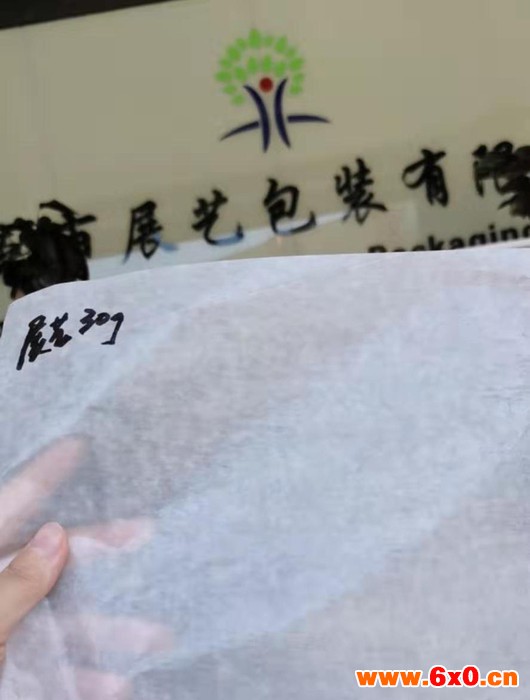 市展艺包装有限
Packaging
展艺30g
www.6x0.cn